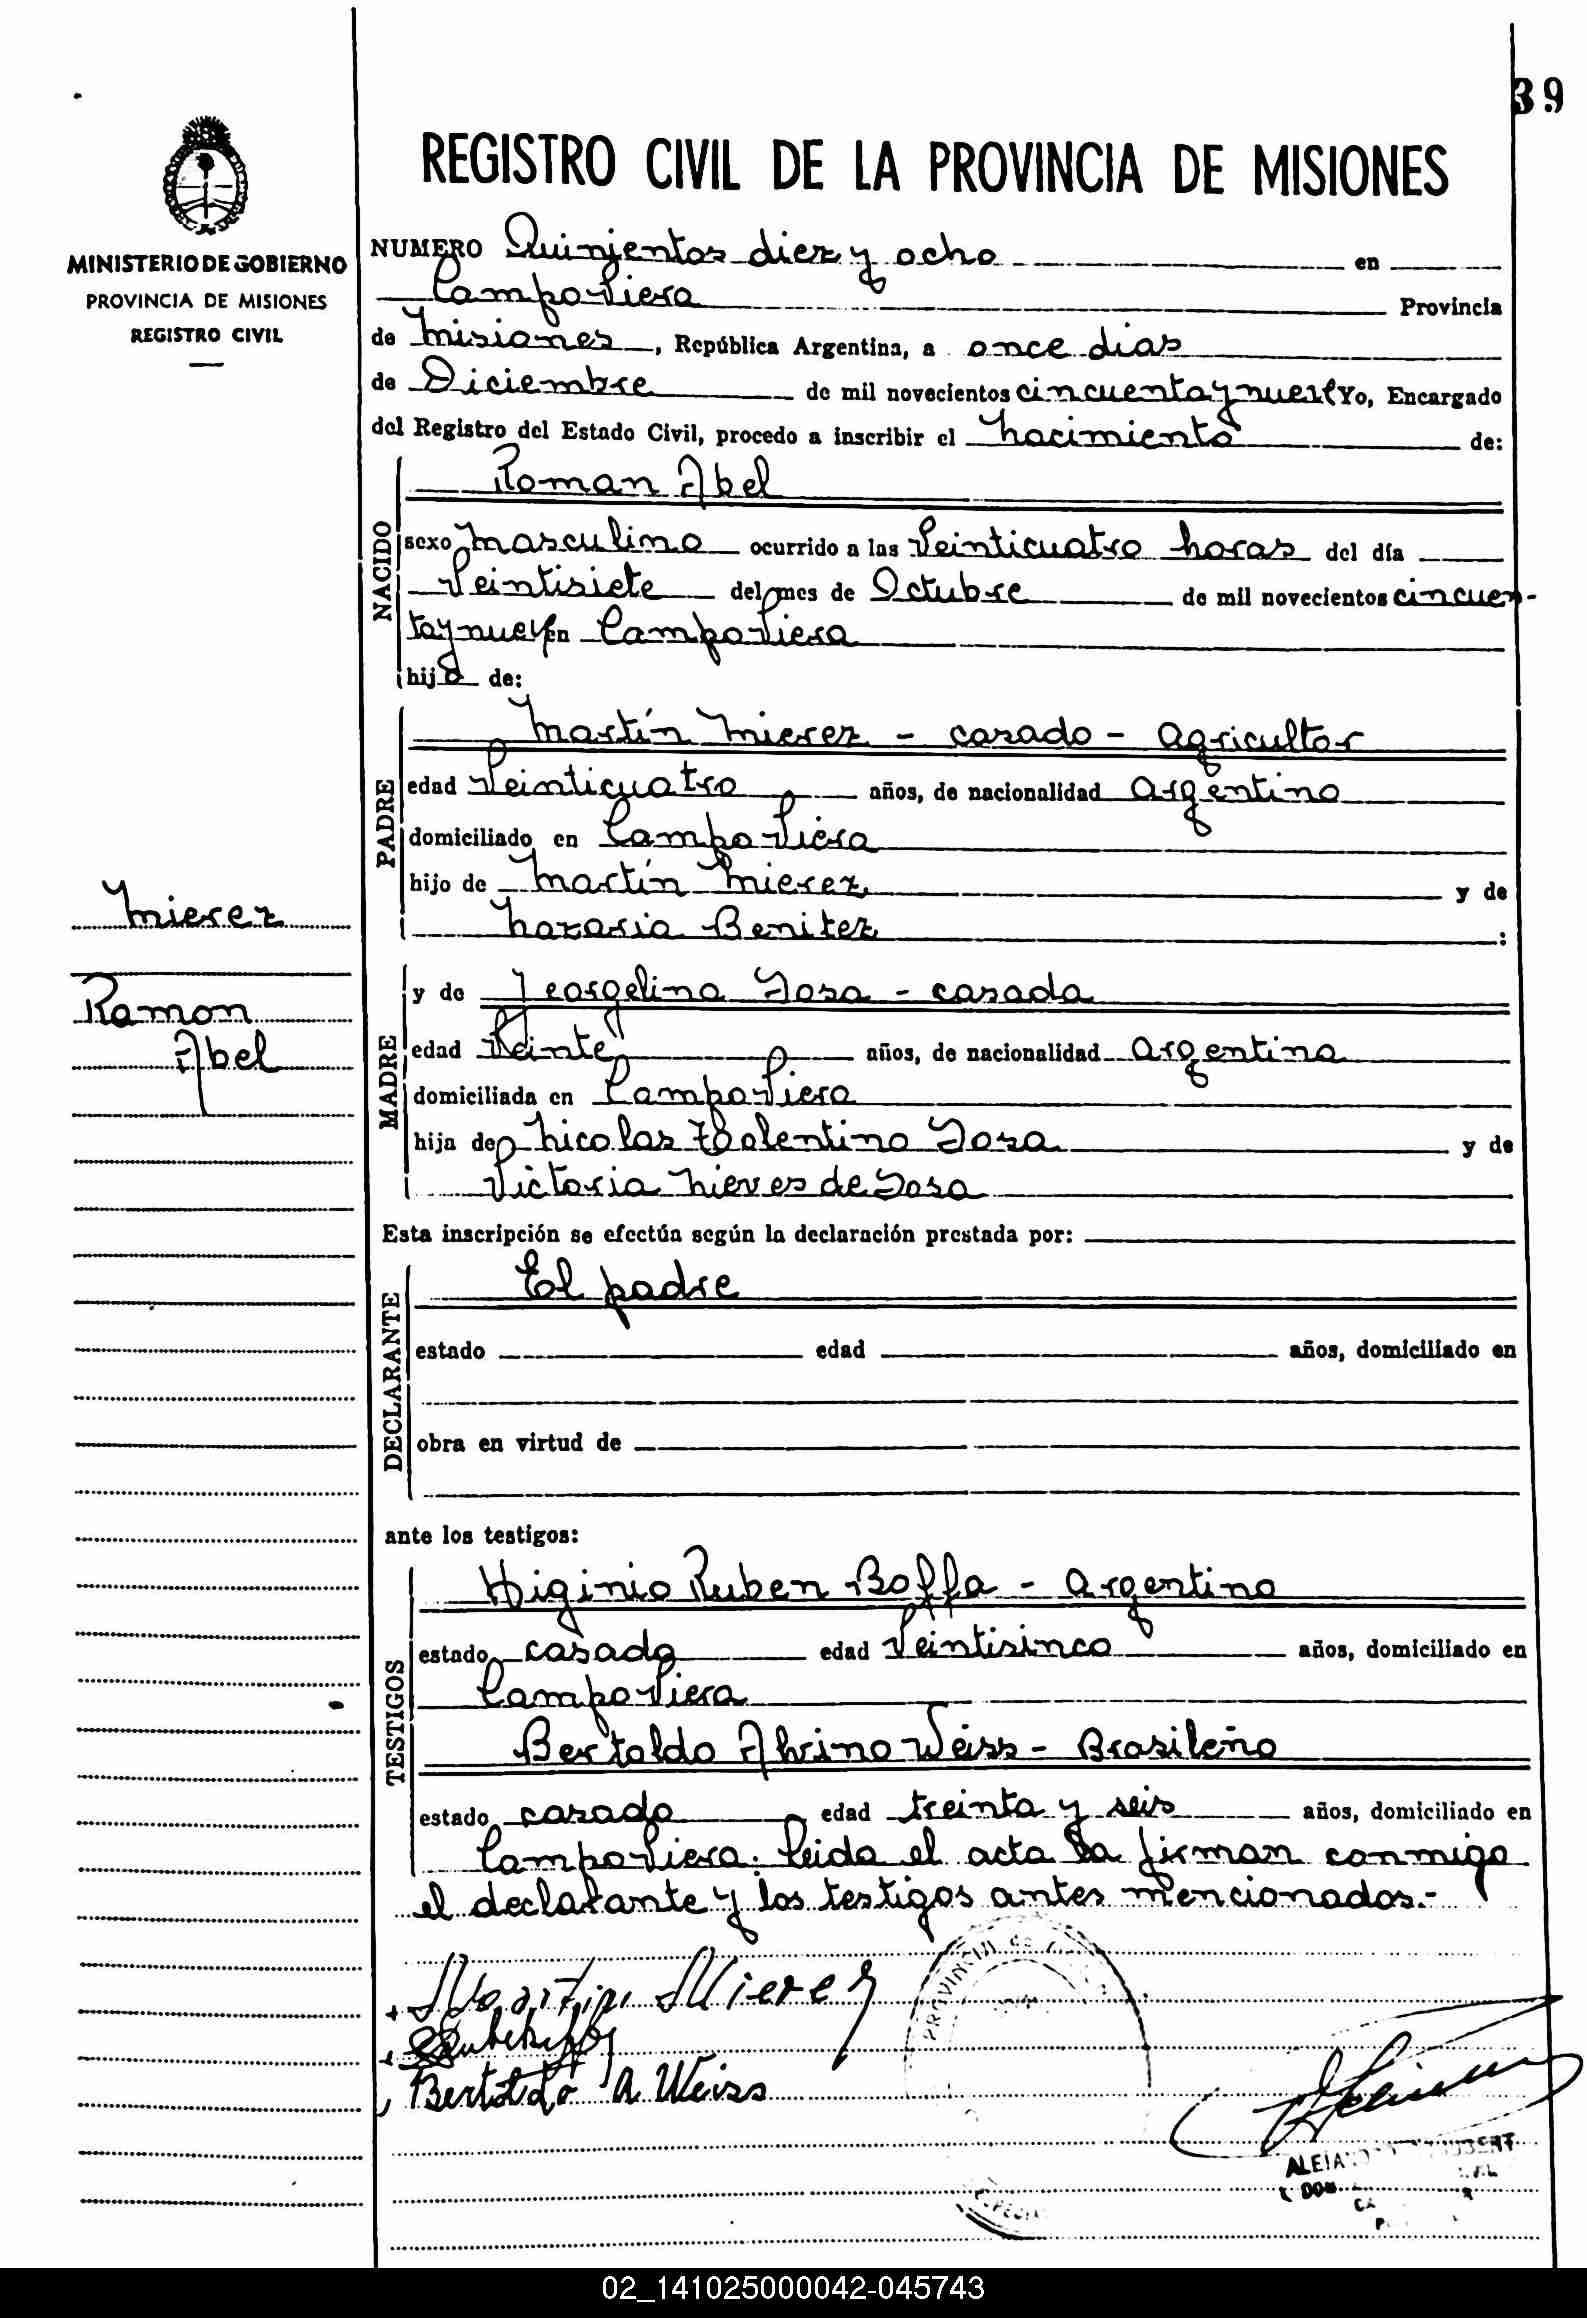 39
REGISTRO CIVIL DE LA PROVINCIA DE MISIONES
MINISTERIO DE GOBIERNO
PROVINCIA DE MISIONES
REGISTRO CIVIL
NUMERO Quinientos diez y ocho en
Campo Viera Provincia
de Misiones, República Argentina, a once dias
de Diciembre de mil novecientos cincuenta y nueve Yo, Encargado
del Registro del Estado Civil, procedo a inscribir el Nacimiento de:
NACIDO
Roman Abel
sexo Masculino ocurrido a las Veinticuatro horas del día
Veintisiete del mes de Octubre de mil novecientos cincuen-
ta y nueve en Campo Viera
hijo de:
PADRE
Martín Mierez - casado - Agricultor
edad Veinticuatro años, de nacionalidad Argentino
domiciliado en Campo Viera
hijo de Martín Mierez y de
Nazaria Benitez :
Mierez
Ramon
Abel
MADRE
y de Jeorgelina Sosa - casada
edad Veinte años, de nacionalidad Argentina
domiciliada en Campo Viera
hija de Nicolas Balentino Sosa y de
Victoria Nieves de Sosa
Esta inscripción se efectúa según la declaración prestada por:
DECLARANTE
El padre
estado edad años, domiciliado en
obra en virtud de
ante los testigos:
TESTIGOS
Higinio Ruben Boffa - Argentino
estado casado edad Veintisinco años, domiciliado en
Campo Viera
Bertoldo Alvino Weiss - Brasileño
estado casado edad treinta y seis años, domiciliado en
Campo Viera. Leida el acta la firman conmigo
el declarante y los testigos antes mencionados.-
Martin Mierez
Bertoldo A. Weiss
PROVINCIA de
02_141025000042-045743